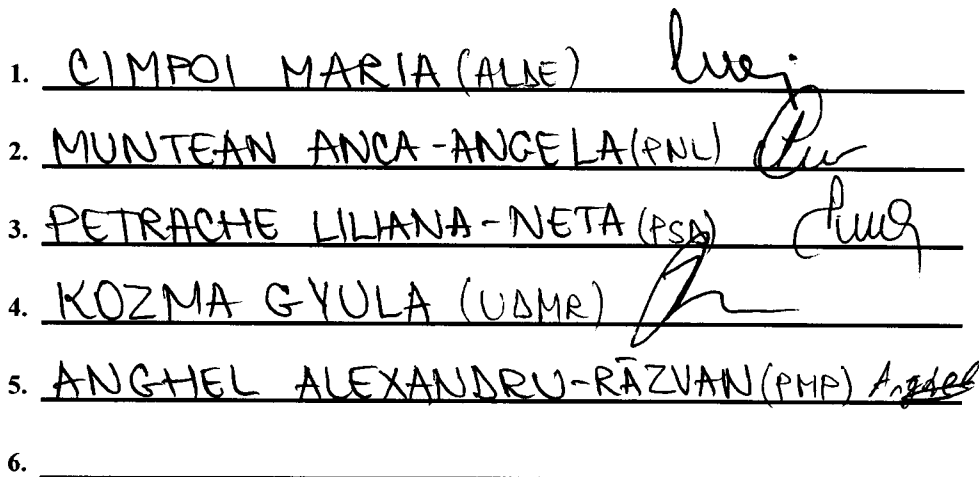 1. CIMPOI MARIA (ALDE)
2. MUNTEAN ANCA-ANGELA (PNL)
3. PETRACHE LILIANA-NETA (PSD)
4. KOZMA GYULA (UDMR)
5. ANGHEL ALEXANDRU-RĂZVAN (PMP) Anghel
6.